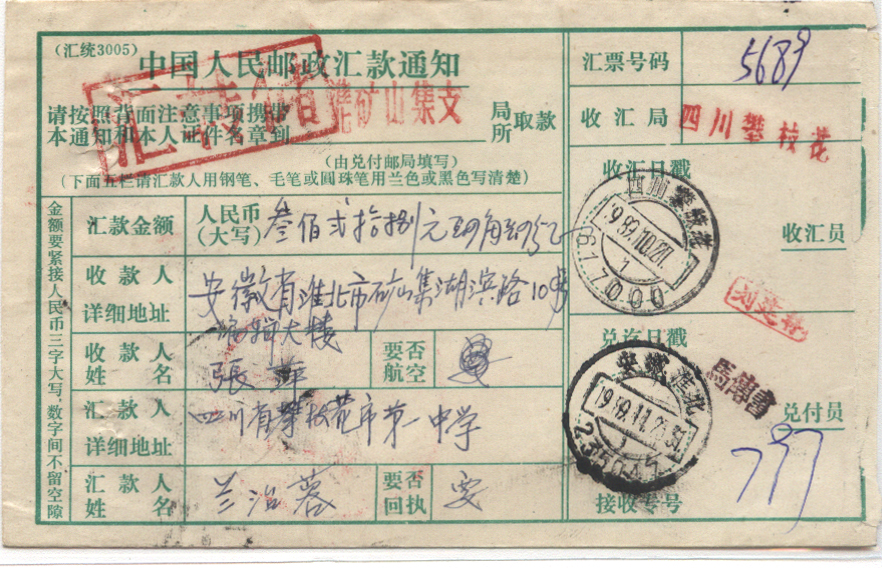 (汇统3005)
中国人民邮政汇款通知
汇转储
请按照背面注意事项携带
本通知和本人证件名章到
淮矿山集支
局
所
取款
(由兑付邮局填写)
(下面五栏请汇款人用钢笔、毛笔或圆珠笔用兰色或黑色写清楚)
金额要紧接人民币三字大写,数字间不留空隙
汇款金额
人民币
(大写)
叁佰贰拾捌元
收款人
详细地址
安徽省淮北市矿山集湖滨路10号
编辑大楼
收款人
姓名
張萍
要否
航空
汇款人
详细地址
四川省攀枝花市第一中学
汇款人
姓名
兰治蓉
要否
回执
要
汇票号码
5689
收汇局
四川攀枝花
收汇日戳
四川攀枝花
1989.10.27
1
617000
收汇员
兑讫日戳
安徽淮北
1989.11.2
235047
馬傳書
兑付员
797
接收专号